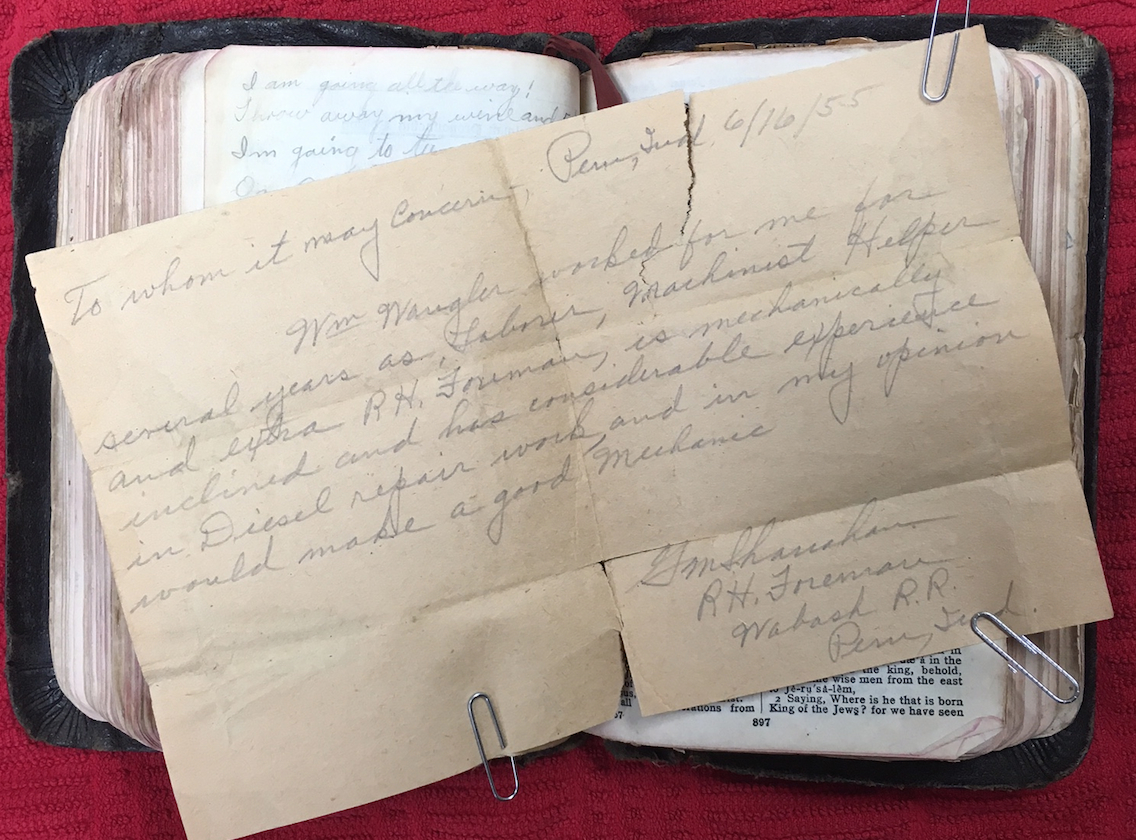 I am going all the way!
I throw away my wine and
Im going to
Peru, Ind, 6/16/55
To whom it may concern,
Wm Waugler worked for me for
several years as, Laborer, Machinist Helper
and extra R.H. Foreman, is mechanically
inclined and has considerable experience
in Diesel repair work, and in my opinion
would make a good Mechanic
GM Shanahan
R.H. Foreman
Wabash R.R.
Peru, Ind.
in the
the king, behold,
wise men from the east
to Je-ru'sa-lem,
2 Saying, Where is he that is born
King of the Jews? for we have seen
all
rations from
897